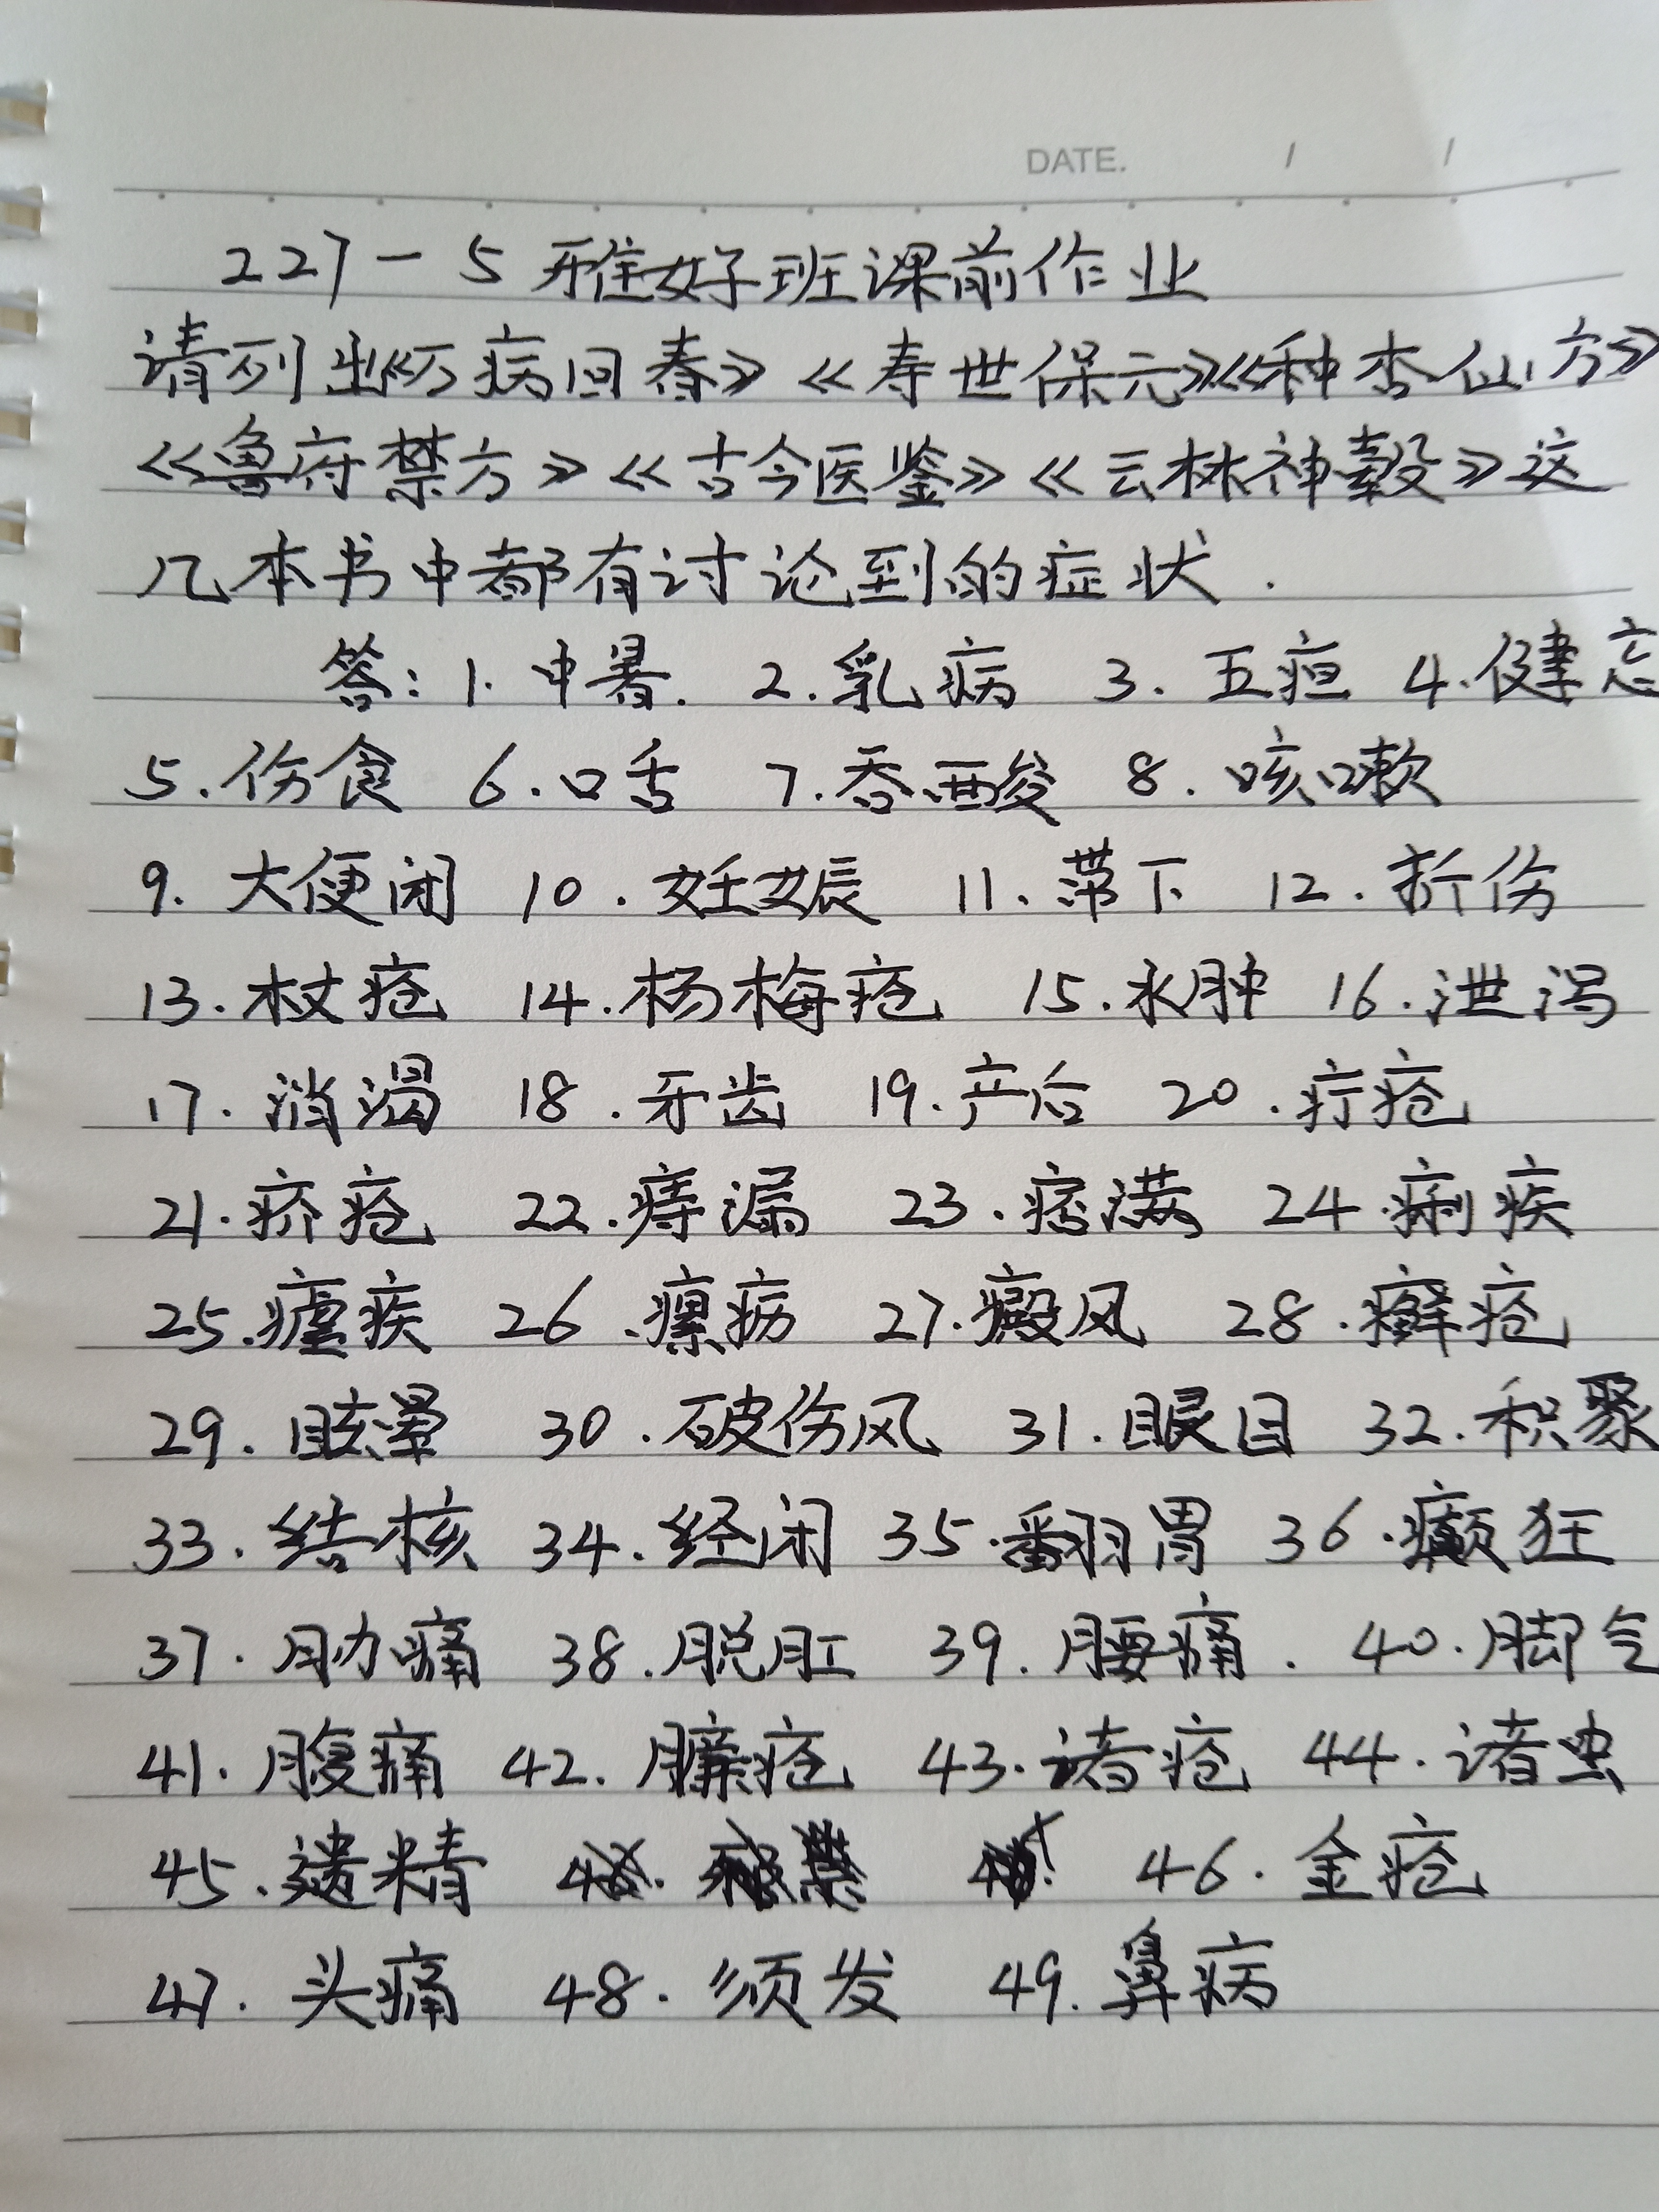 DATE. / /
227-5 雅好班课前作业
请列出《万病回春》《寿世保元》《种杏仙方》
《鲁府禁方》《古今医鉴》《云林神彀》这
几本书中都有讨论到的症状.
答: 1. 中暑. 2. 乳病 3. 五疸 4. 健忘
5. 伤食 6. 口舌 7. 吞酸 8. 咳嗽
9. 大便闭 10. 妊娠 11. 带下 12. 折伤
13. 杖疮 14. 杨梅疮 15. 水肿 16. 泄泻
17. 消渴 18. 牙齿 19. 产后 20. 疔疮
21. 疥疮 22. 痔漏 23. 痞满 24. 痢疾
25. 疟疾 26. 瘰疬 27. 癜风 28. 癣疮
29. 眩晕 30. 破伤风 31. 眼目 32. 积聚
33. 结核 34. 经闭 35. 翻胃 36. 癫狂
37. 胁痛 38. 脱肛 39. 腰痛. 40. 脚气
41. 腹痛 42. 臁疮 43. 诸疮 44. 诸虫
45. 遗精 46. 金疮
47. 头痛 48. 须发 49. 鼻病